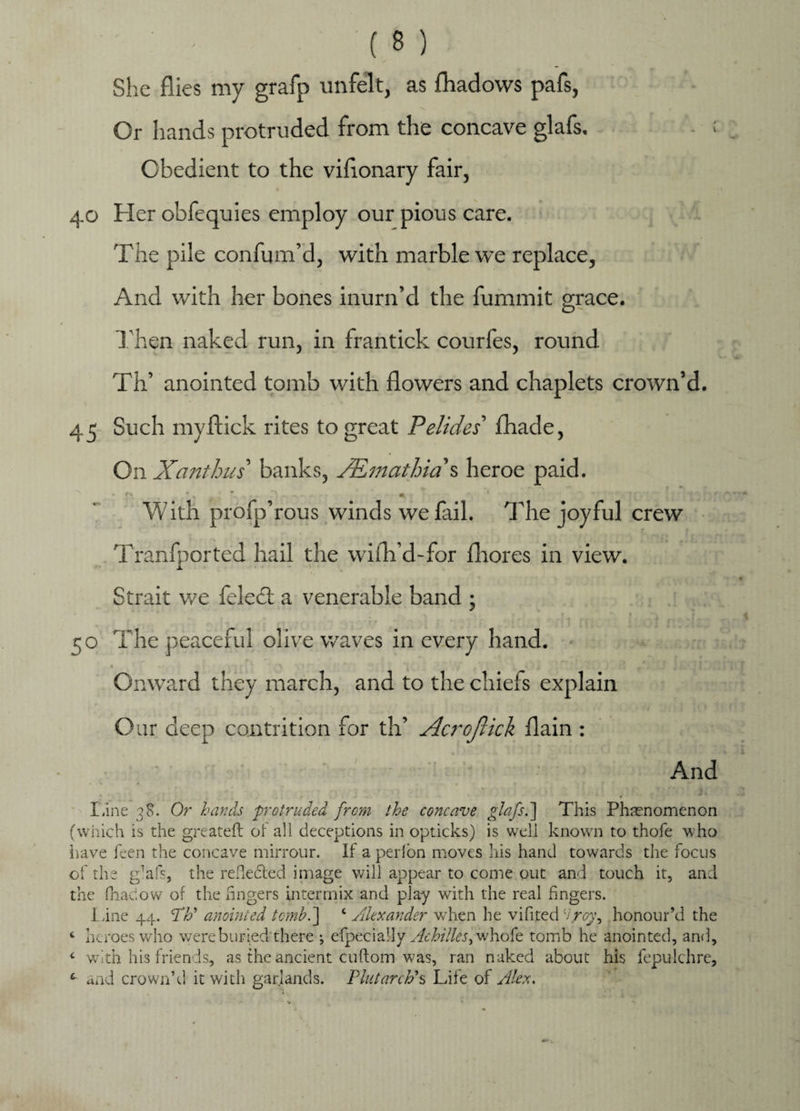 ( 8 )
She flies my graſp unfelt, as ſhadows paſs,
Or hands protruded from the concave glaſs.
Obedient to the viſionary fair,
40 Her obſequies employ our pious care.
The pile conſum'd, with marble we replace,
And with her bones inurn'd the ſummit grace.
Then naked run, in frantick courſes, round
Th' anointed tomb with flowers and chaplets crown'd.
45 Such myſtick rites to great Pelides' ſhade,
On Xanthus' banks, Æmathia's heroe paid.
With proſp'rous winds we ſail. The joyful crew
Tranſported hail the wiſh'd-for ſhores in view.
Strait we ſelect a venerable band ;
50 The peaceful olive waves in every hand.
Onward they march, and to the chiefs explain
Our deep contrition for th' Acroſtick ſlain :
And
Line 38. Or hands protruded from the concave glaſs.] This Phænomenon
(which is the greateſt of all deceptions in opticks) is well known to thoſe who
have ſeen the concave mirrour. If a perſon moves his hand towards the focus
of the glaſs, the reflected image will appear to come out and touch it, and
the ſhadow of the fingers intermix and play with the real fingers.
Line 44. Th' anointed tomb.] ‘ Alexander when he viſited Troy, honour'd the
‘ heroes who were buried there ; eſpecially Achilles, whoſe tomb he anointed, and,
‘ with his friends, as the ancient cuſtom was, ran naked about his ſepulchre,
‘ and crown'd it with garlands. Plutarch's Life of Alex.